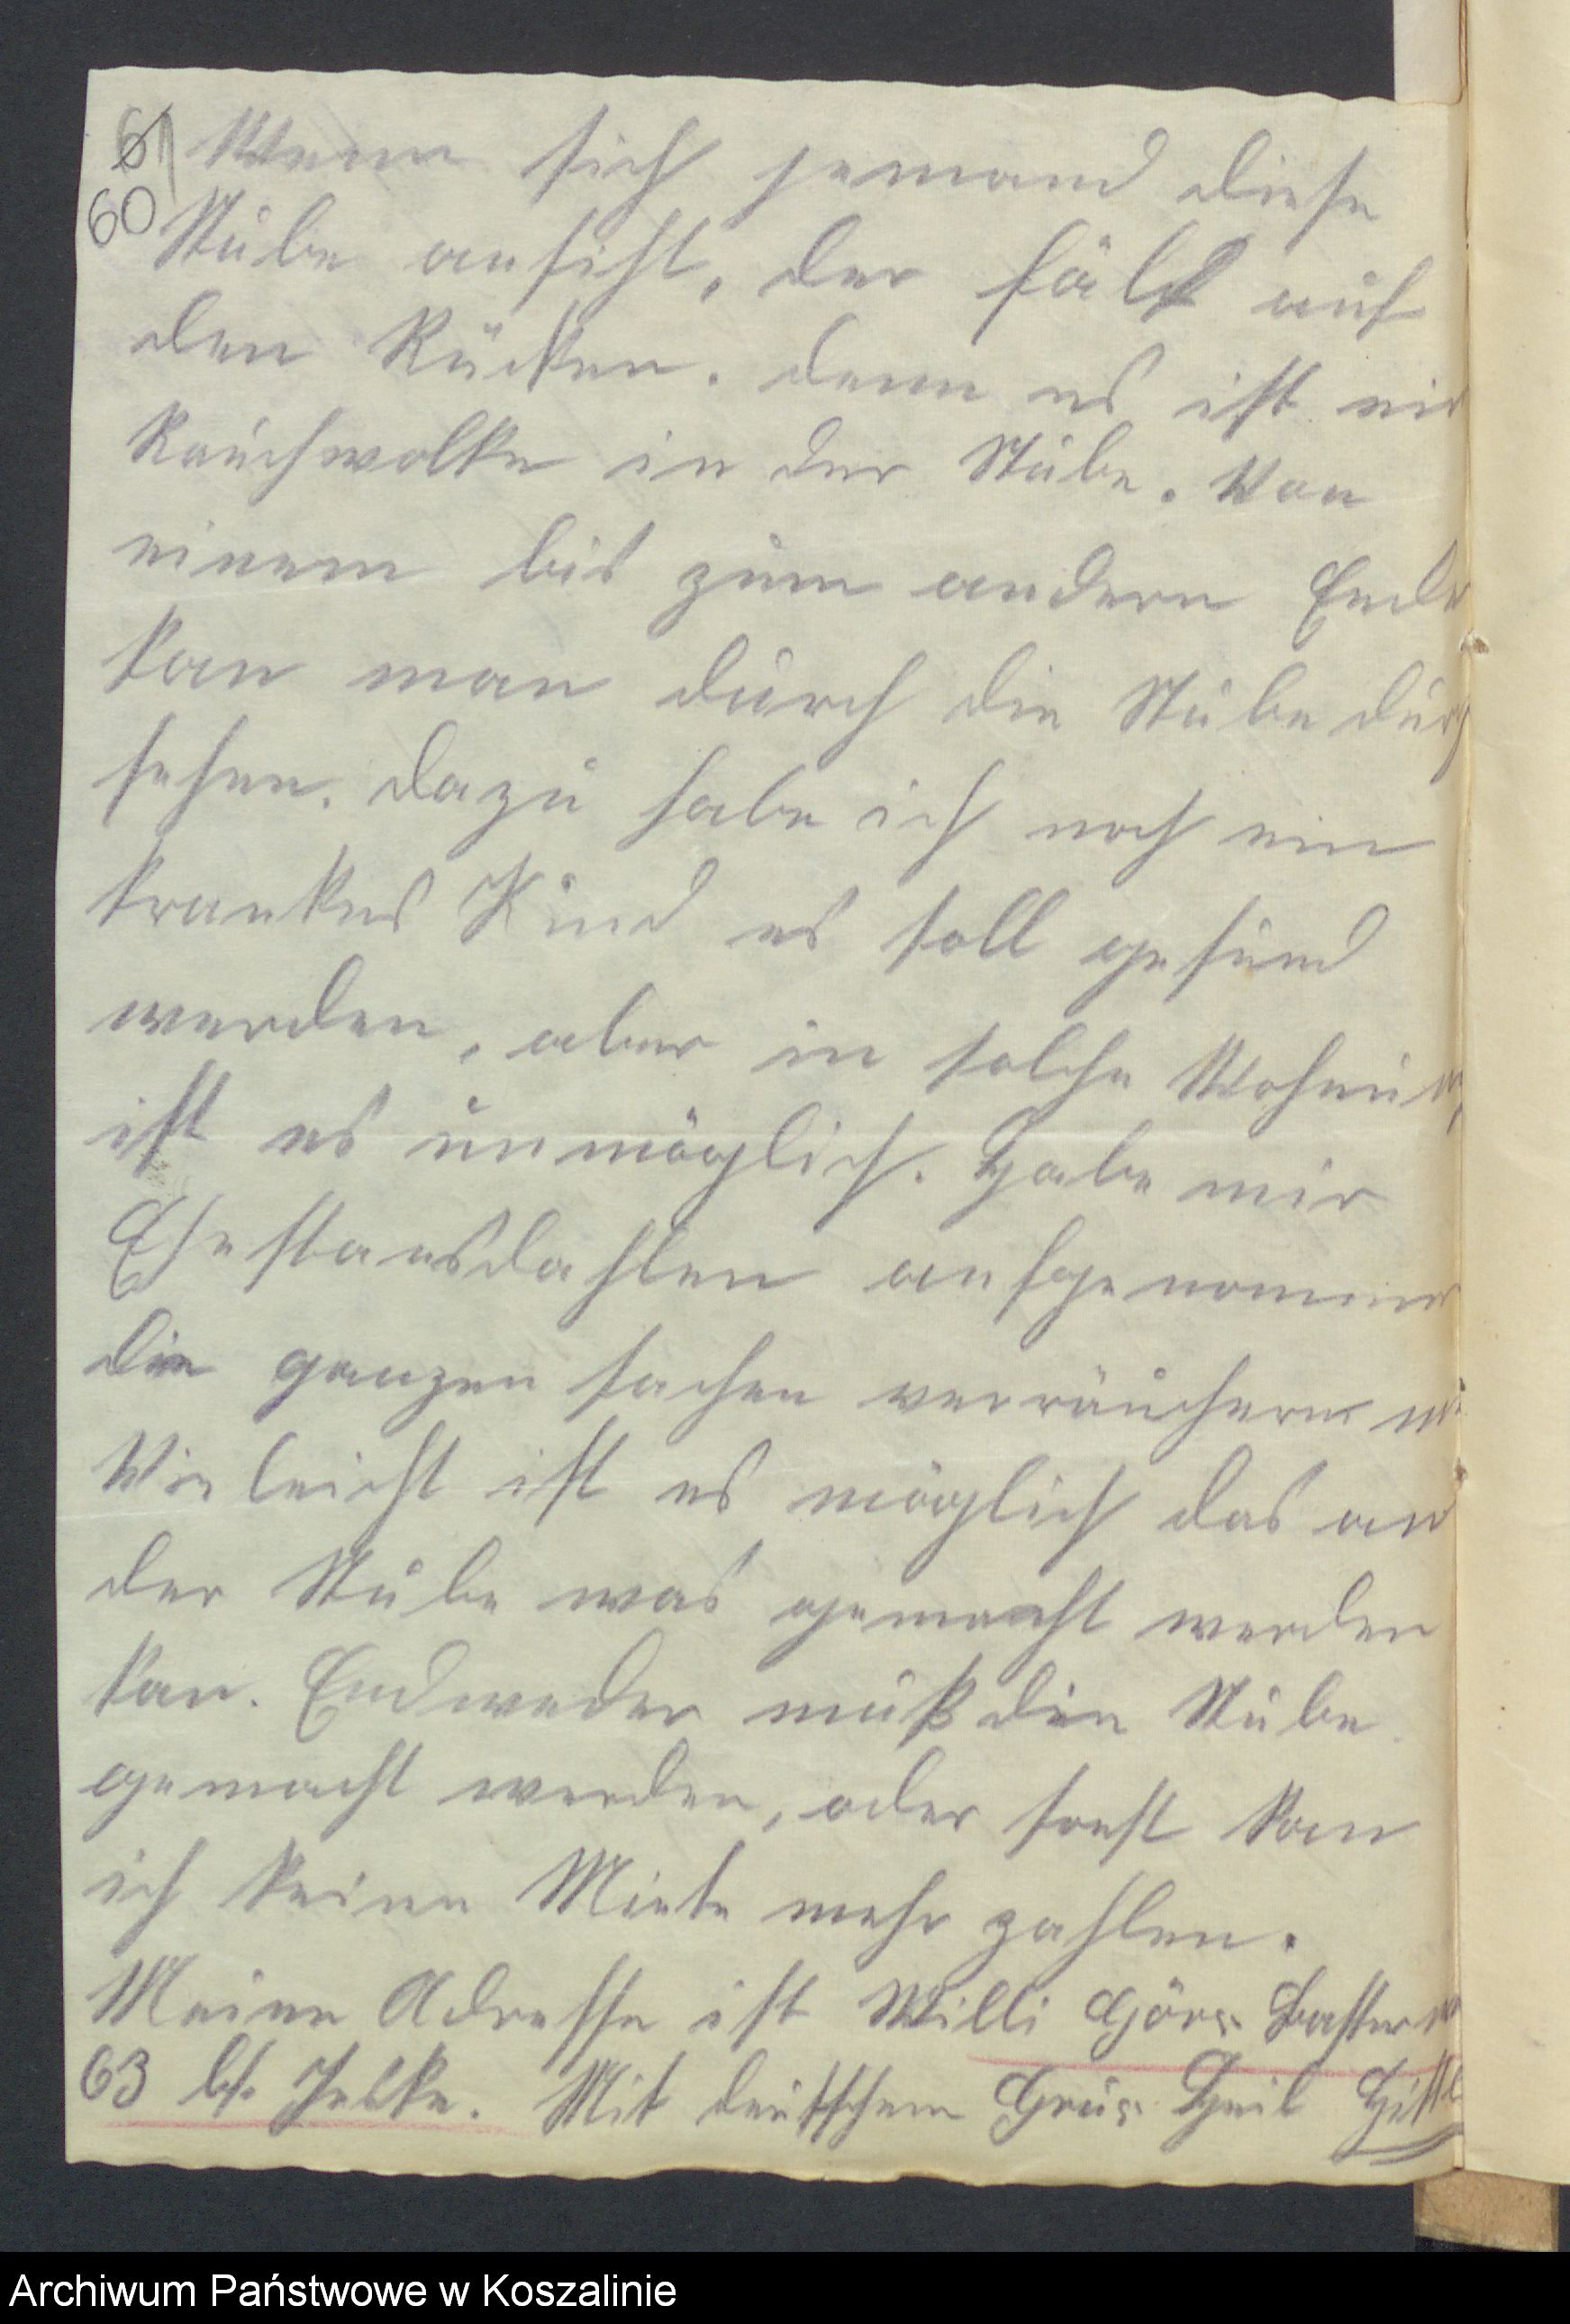 61
60
Wenn sich jemand diese
Stube ansiht, der fält auf
den Rücken. denn es ist ein
Rauchwolke in der Stube. Von
einem bis zum andern Ende
kan man durch die Stube durch
sehen. dazu habe ich noch ein
krankes Kind es soll gesund
werden, aber in solche Wohnung
ist es unmöglich. Habe mir
Ehestansdahlen aufgenommen
die ganzen sachen verräuchern
Vieleicht ist es möglich das an
der Stube was gemacht werden
kan. Endweder muß die Stube
gemacht werden, oder sonst kan
ich keine Miete mehr zahlen.
Meine Adresse ist Willi Görs
63 b/. Mit deutschem Grus Heil Hitler
Archiwum Państwowe w Koszalinie